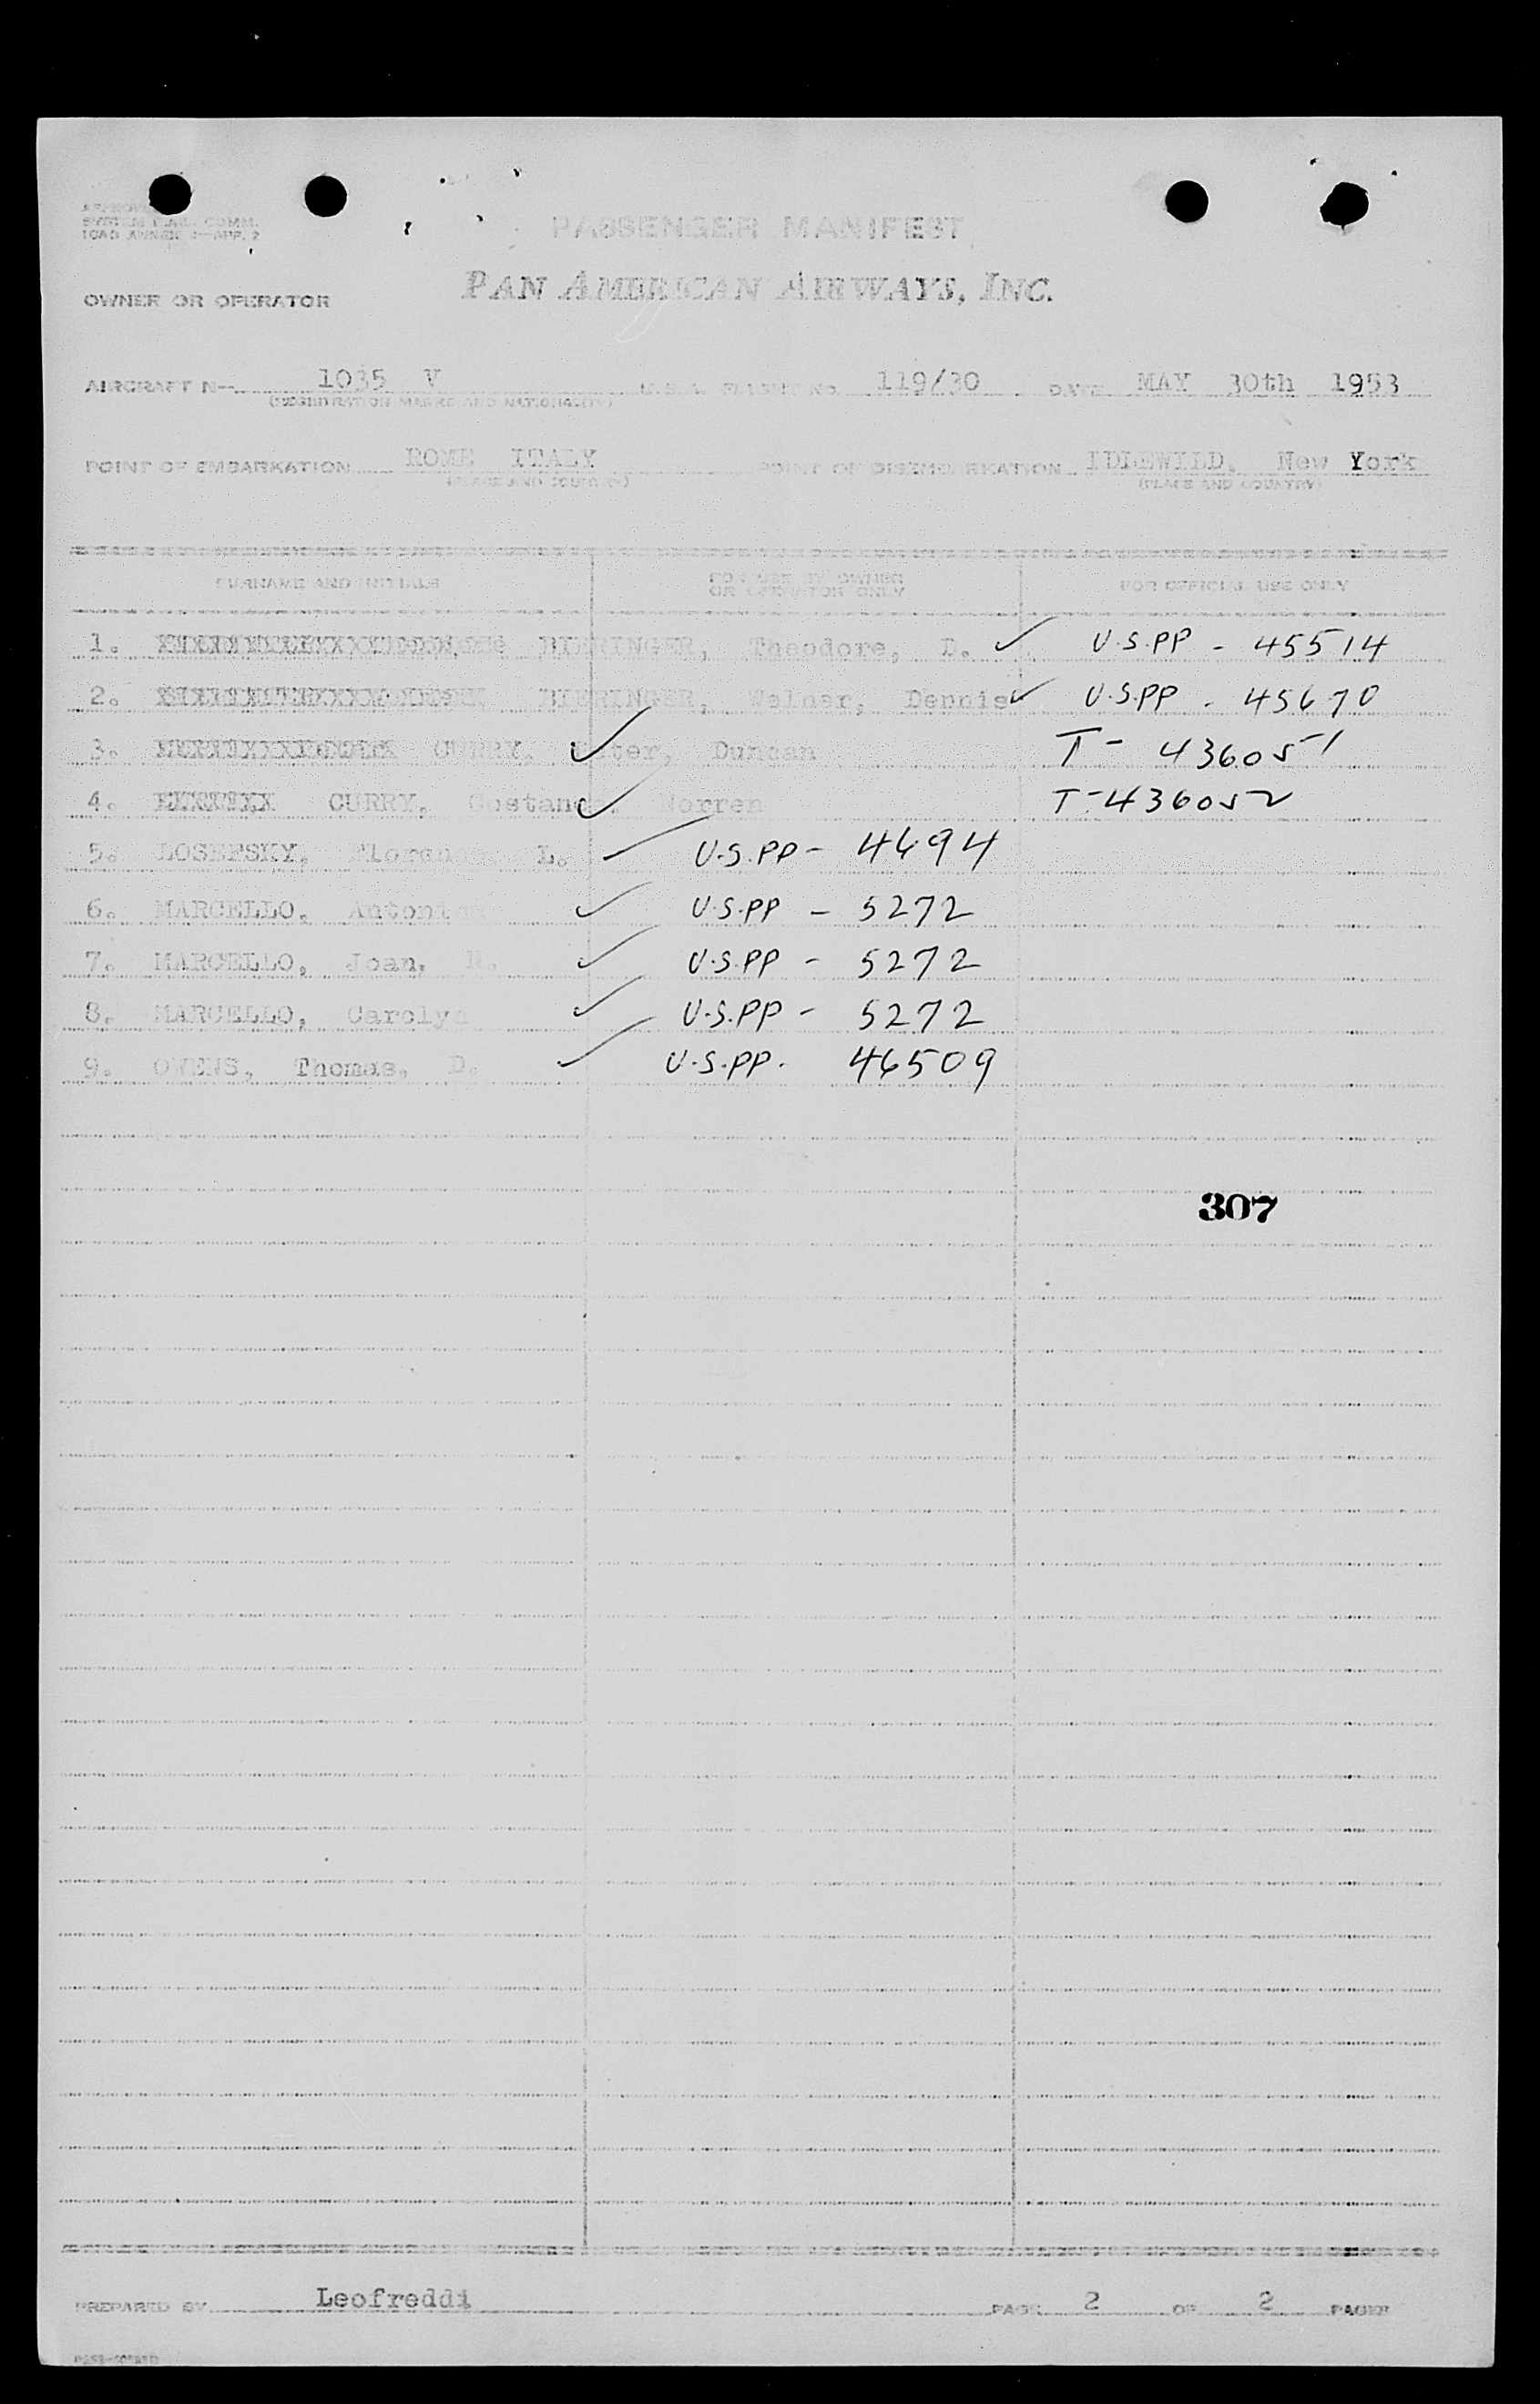 PASSENGER MANIFEST
OWNER OR OPERATOR PAN AMERICAN AIRWAYS, INC.
AIRCRAFT N- 1035 V FLIGHT NO. 119/30 DATE MAY 30th 1953
(REGISTRATION MARKS AND NATIONALITY)
POINT OF EMBARKATION ROME ITALY POINT OF DISEMBARKATION IDLEWILD, New York
(PLACE AND COUNTRY) (PLACE AND COUNTRY)
SURNAME AND INITIALS FOR USE BY OWNER OR OPERATOR ONLY FOR OFFICIAL USE ONLY
1. BIERINGER, Theodore, D. ✓ U.S.PP - 45514
2. BIERINGER, Dennis ✓ U.S.PP - 45670
3. CURRY, Duncan ✓ T- 436051
4. CURRY, ✓ Norren T-436052
5. LOSEFSKY, L. ✓ U.S.PP- 4694
6. MARCELLO, ✓ U.S.PP - 5272
7. MARCELLO, Joan, R. ✓ U.S.PP - 5272
8. MARCELLO, Carolyn ✓ U.S.PP - 5272
9. OWENS, Thomas, D. ✓ U.S.PP. 46509
307
PREPARED BY Leofreddi PAGE 2 OF 2 PAGES